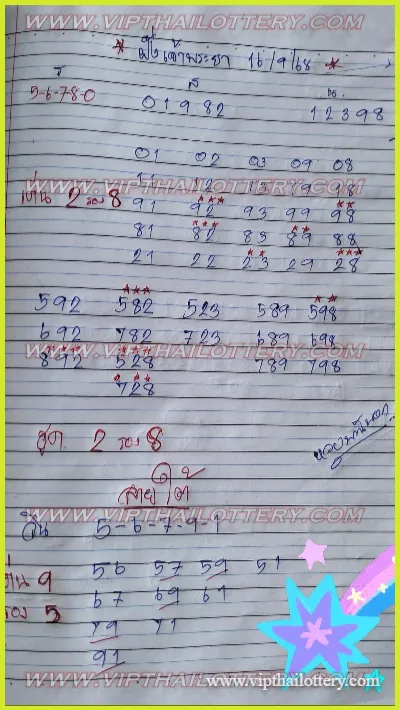 WWW.VIPTHAILOTTERY.COM
* ฝั่งเจ้าพระยา 16/9/68 *
ร ส น.
5-6-7-8-0 01982 12398
01 02 03 09 08
11 12 13 19 18
WWW.VIPTHAILOTTERY.COM
เด่น 2 รอง 8 91 92 93 99 98
81 82 83 89 88
21 22 23 29 28
592 582 523 589 598
692 782 723 689 698
WWW.VIPTHAILOTTERY.COM
892 528 789 798
728
ชุด 2 รอง 8
สายใต้
WWW.VIPTHAILOTTERY.COM
วิน 5-6-7-9-1
เด่น 9 56 57 59 51
รอง 5 67 69 61
79 71
91
WWW.VIPTHAILOTTERY.COM
www.vipthailottery.com